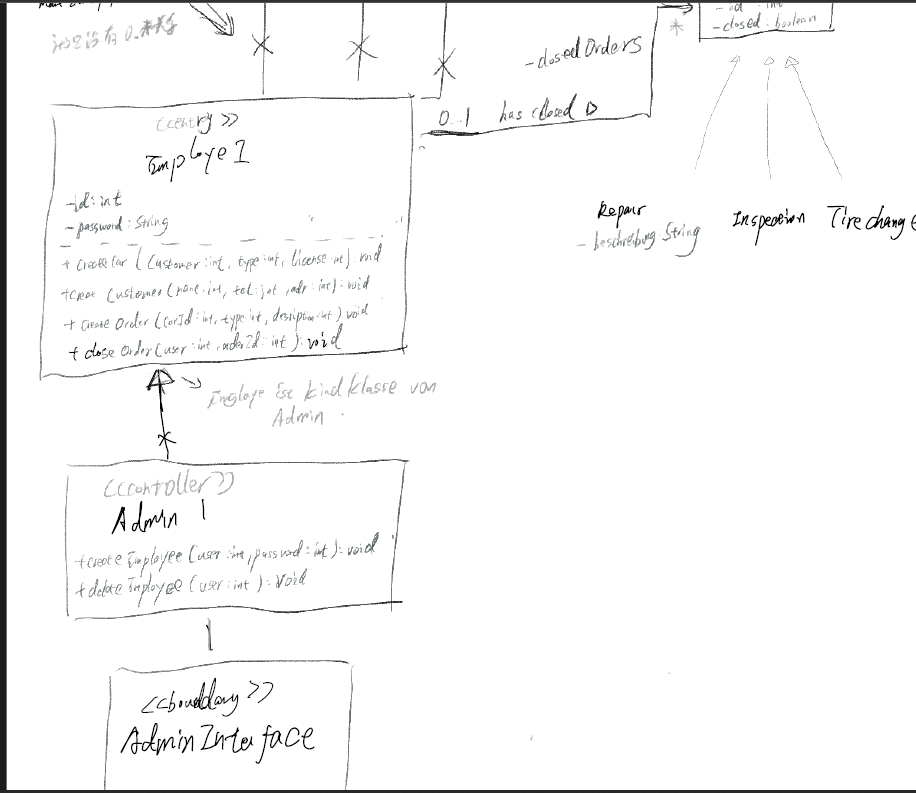 - id : int
- closed : boolean
*
- closedOrders
0..1 has closed ▷
<<entity>>
Employe 1
- id : int
- password : String
+ createCar (Customer : int, type : int, license : int) : void
+ creat Customer (name : int, tel : int, adr : int) : void
+ create Order (carId : int, type : int, desription : int) void
+ close Order (user : int, orderId : int) : void
Repair
- beschreibung : String
Inspection
Tire change
Employe ist kind klasse von
Admin .
<<controller>>
Admin 1
+ create Employee (user : int, password : int) : void
+ delete Employee (user : int) : void
<<bounddary>>
Admin Interface